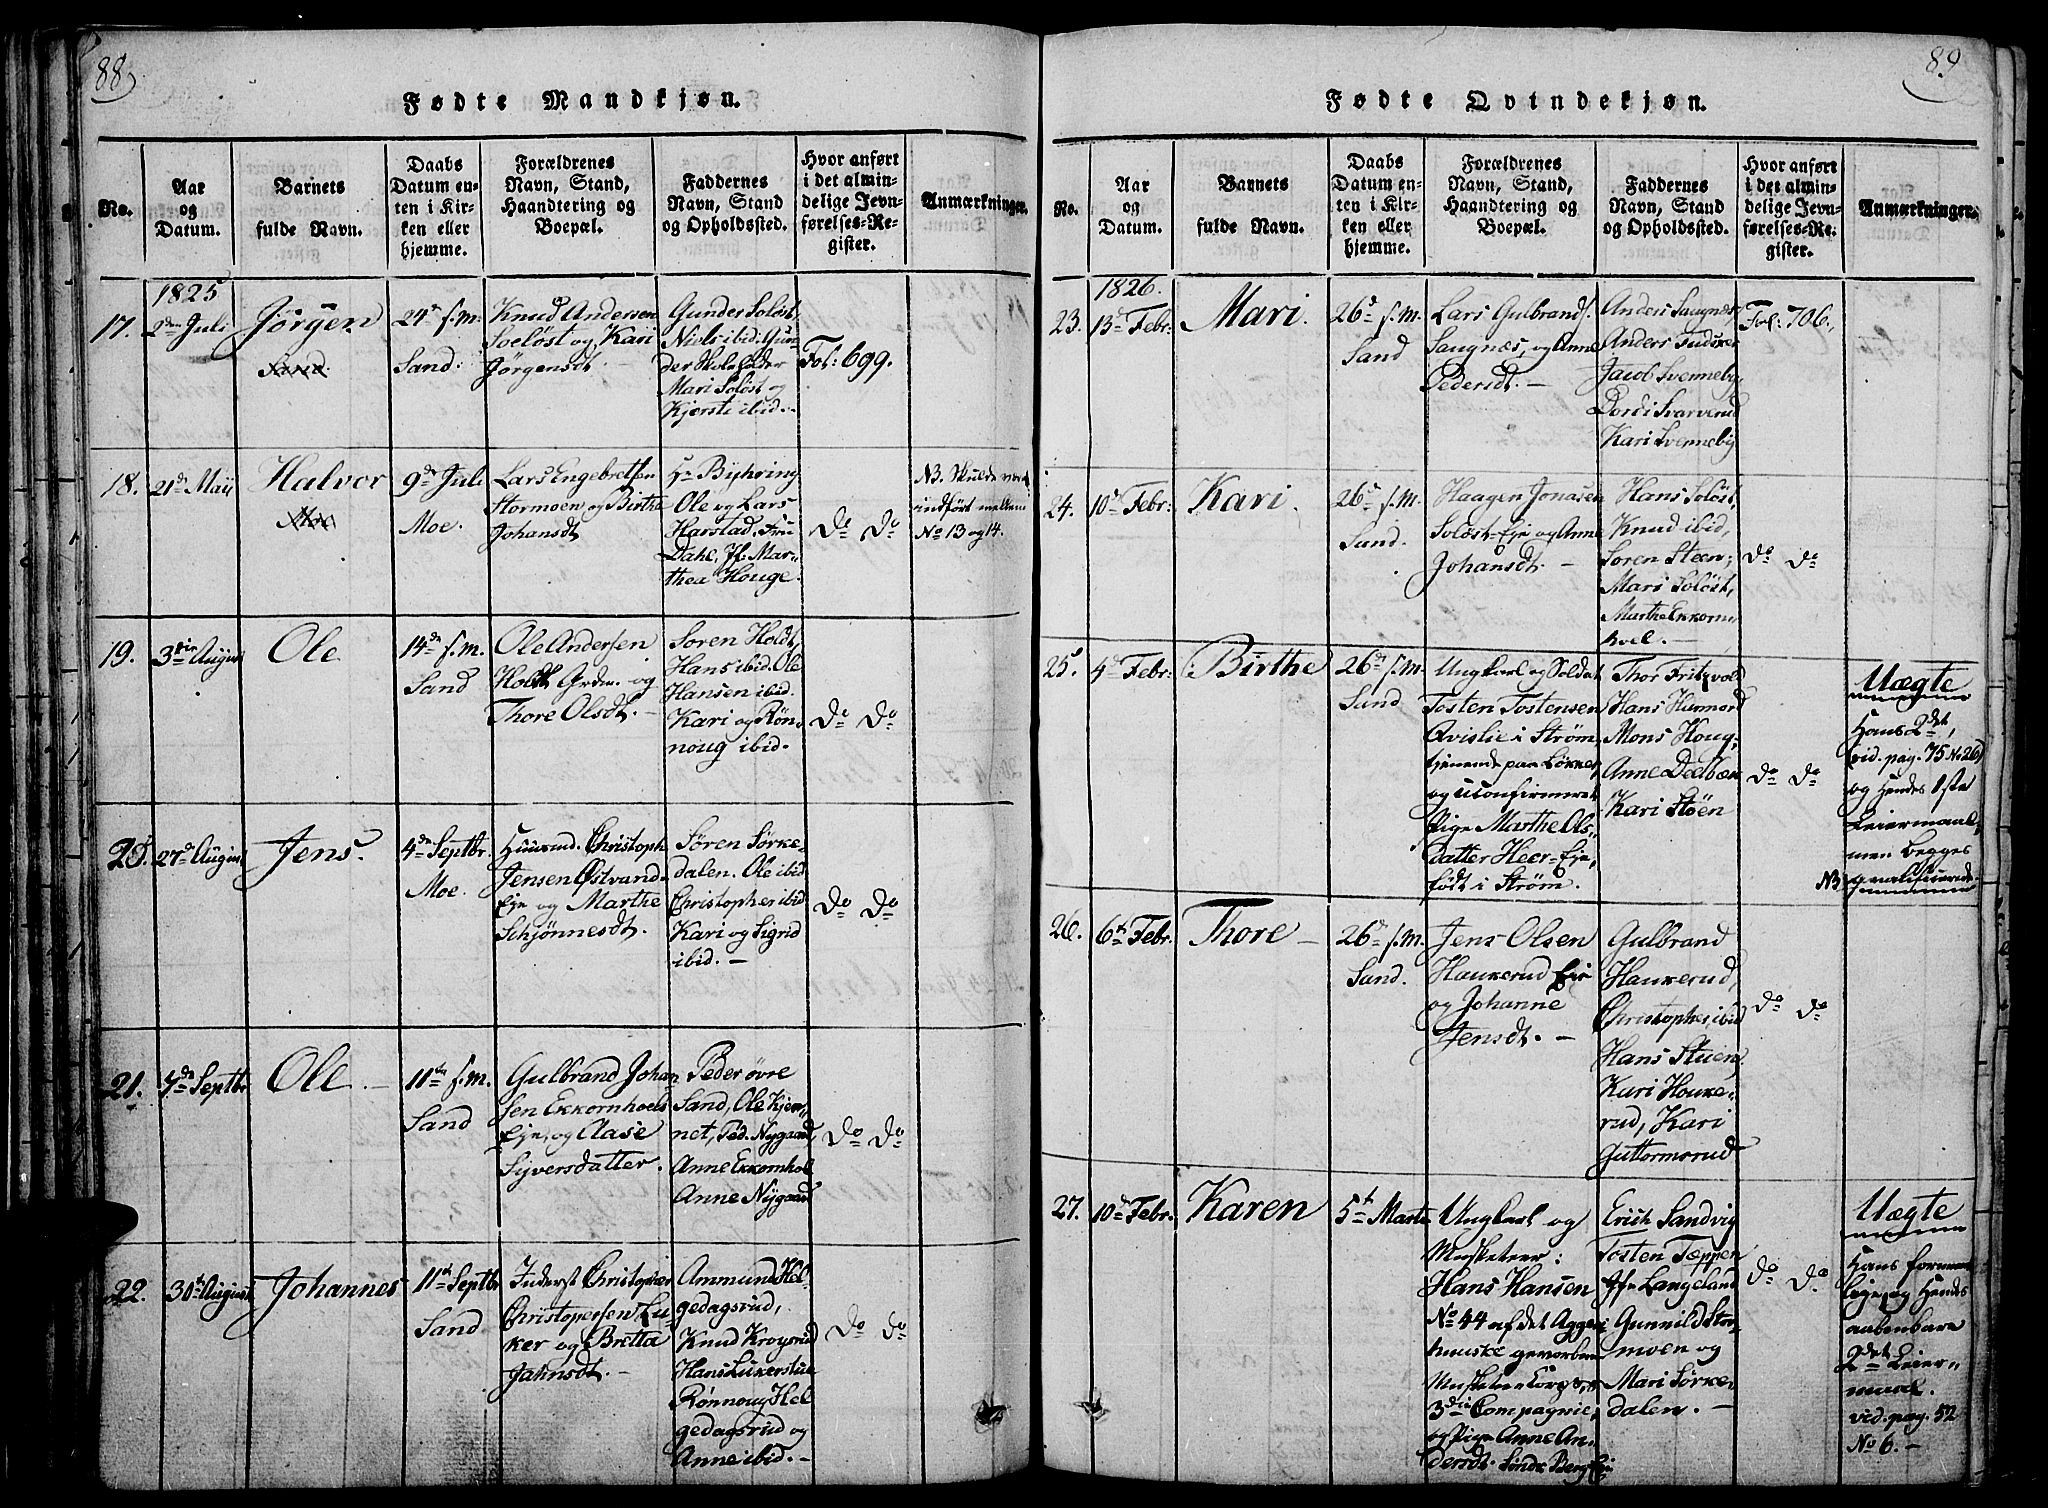 88
Fødte Mandkjøn.
No.
Aar
og
Datum.
Barnets
fulde Navn.
Daabs
Datum en-
ten i Kir-
ken eller
hjemme.
Forældrenes
Navn, Stand,
Haandtering og
Boepæl.
Faddernes
Navn, Stand
og Opholdssted.
Hvor anført
i det almin-
delige Jevn-
førelses-Re-
gister.
Anmærkninger.
1825
17.
2den Juli
Jörgen
Sand.
24de s.m.
Sand.
Knud Andersen
Soeløst og Kari
Jörgensdt
Gunder Soløst
Niels ibid. Gun-
der Skoleholder
Mari Soløst og
Kjersti ibid.
Fol: 699.
18.
21de Maij
Halvor
Moe
9de Juli
Moe.
Lars Engebretsen
Stormoen og Birthe
Johansdt
Hr Byhring
Ole og Lars
Harstad, Fru
Dahl, Jf. Mar-
thea Houge.
Do Do
NB. Skulde være
indført mellem
No 13 og 14.
19.
3die August
Ole
14de s.m.
Sand
Ole Andersen
Holdt Grdm. og
Thore Olsdt. –
Soren Holdt
Hans ibid. Ole
Hansen ibid.
Kari og Røn-
noug ibid.
Do Do
20.
27de August
Jens.
4de Septbr.
Moe.
Huusmd. Christoph
Jensen Østvand-
Eje og Marthe
Schjønnesdt.
Søren Sørke-
dalen. Ole ibid
Christopher ibid
Kari og Sigrid
ibid. –
Do Do
21.
7de Septbr
Ole. –
11te s.m.
Sand
Gulbrand Johan-
sen Ekkornhoels
Eje, og Aase
Syversdatter.
Peder øvre
Sand, Ole Kjer-
net, Ped. Nygaard,
Anne Ekkornhol
Anne Nygaard
Do Do
22.
30te August
Johannes
11te Septbr
Sand
Inderst Christopher
Christopersen Lu-
ker og Britta
Jahnsdt. –
Ammund Hel-
gedagsrud,
Knud Krogsrud
Hans Lukerstue
Rønnoug Hel
gedagsrud og
Anne ibid. –
Do do
89
Fødte Qvindekjøn.
No.
Aar
og
Datum.
Barnets
fulde Navn.
Daabs
Datum en-
ten i Kir-
ken eller
hjemme.
Forældrenes
Navn, Stand,
Haandtering og
Boepæl.
Faddernes
Navn, Stand
og Opholdssted.
Hvor anført
i det almin-
delige Jevn-
førelses-Re-
gister.
Anmærkninger.
1826.
23.
13de Febr:
Mari.
26de s.m.
Sand
Lars Gulbrands.
Saugnæs, og Anne
Pedersdt. –
Anders Saugnæs,
Anders Judsker
Jacob Svenneby,
Dordi Svarverud
Kari Svenneby
Fol: 706.
24.
10de Febr:
Kari.
26de s.m.
Sand.
Haagen Jonasen
Soløst-Eje og Anne
Johansdt. –
Hans Soløst,
Knud ibid,
Soren Steen;
Mari Soløst,
Marthe Ekkorn-
hoel. –
Do Do
25.
4de Febr:
Birthe
26de s.m.
Sand
Ungkarl og Soldat
Tosten Tostensen
Qvislie i Strøm,
tjenende paa Løkker,
og uconfirmeret
Pige Marthe Ols-
datter Heer-Eje,
födt i Strøm.
Thor Fritzvold
Hans Hammord
Mons Houg,
Anne Dælbæk
Kari Støen
Do Do
Uægte
Hans 2det,
(vid. pag. 75 No 26)
og Hendes 1ste
Leiermaal,
men begges
NB
26.
6te Febr.
Thore –
26de s.m.
Sand.
Jens Olsen
Haukerud Eie
og Johanne
Jensdt. –
Gulbrand
Haukerud,
Christopher ibid
Hans Stuen,
Kari Houke-
rud, Kari
Guttormsrud
Do Do
27.
10de Febr.
Karen
5te Marts
Ungkarl og
Musketeer:
Hans Hansen
No 44 af det Agger-
huuske geworbne
Musketeer Corps,
3die Compagnie,
og Pige Anne An-
dersdt. Søndr Berg Eie
Erich Sandvig
Tosten Tæppen
Iffr Langeland
Gunnild Stor-
moen og
Mari Sørke-
dalen. –
Do Do
Uægte
Hans formeent-
lige, og Hendes
aabenbare
2det Leier-
maal.
vid. pag. 52
No 6. –